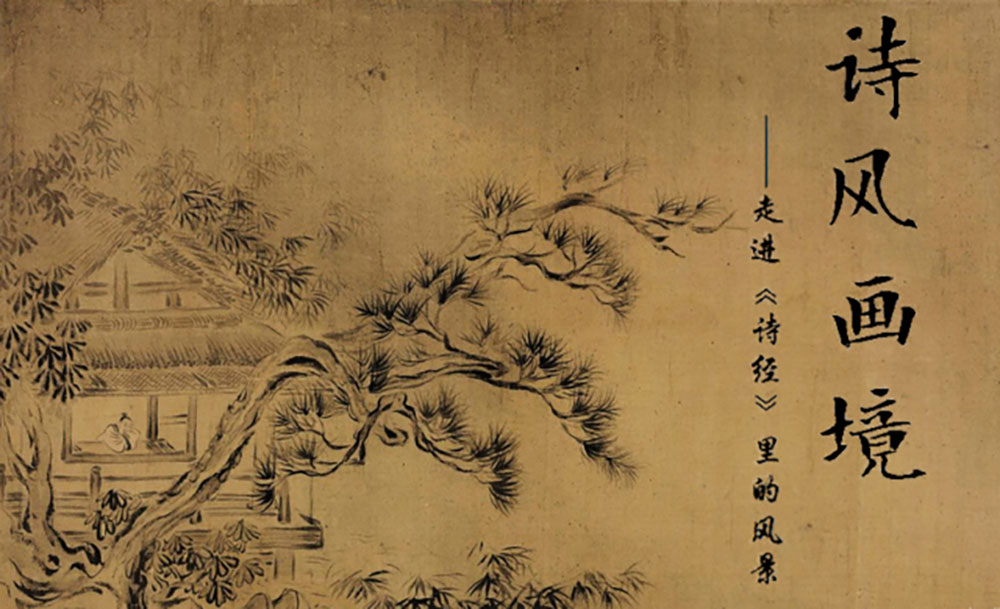 诗风画境
——走进《诗经》里的风景